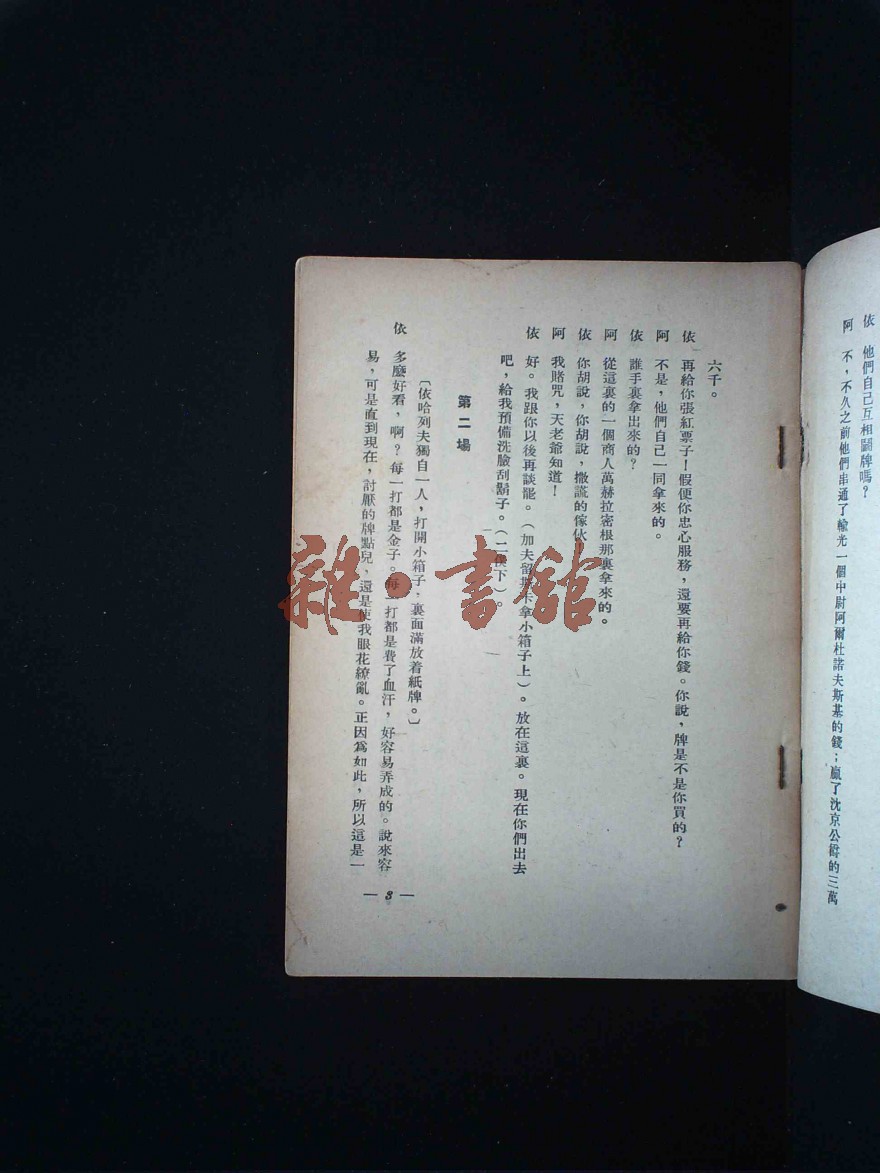 依　他們自己互相鬪牌嗎？
阿　不，不久之前他們串通了輸光一個中尉阿爾杜諾夫斯基的錢；贏了沈京公爵的三萬
六千。
依　再給你張紅票子！假使你忠心服務，還要再給你錢。你說，牌是不是你買的？
阿　不是，他們自己一同拿來的。
依　誰手裏拿出來的？
阿　從這裏的一個商人萬赫拉密根那裏拿來的。
依　你胡說，你胡說，撒謊的傢伙！
阿　我賭咒，天老爺知道！
依　好。我跟你以後再談罷。（加夫留斯卡拿小箱子上）。放在這裏。現在你們出去
吧，給我預備洗臉刮鬍子。（二僕下）。
第二場
〔依哈列夫獨自一人，打開小箱子，裏面滿放着紙牌。〕
依　多麼好看，啊？每一打都是金子。每一打都是費了血汗，好容易弄成的。說來容
易，可是直到現在，討厭的牌點兒，還是使我眼花繚亂。正因爲如此，所以這是一
— 3 —
雜·書館